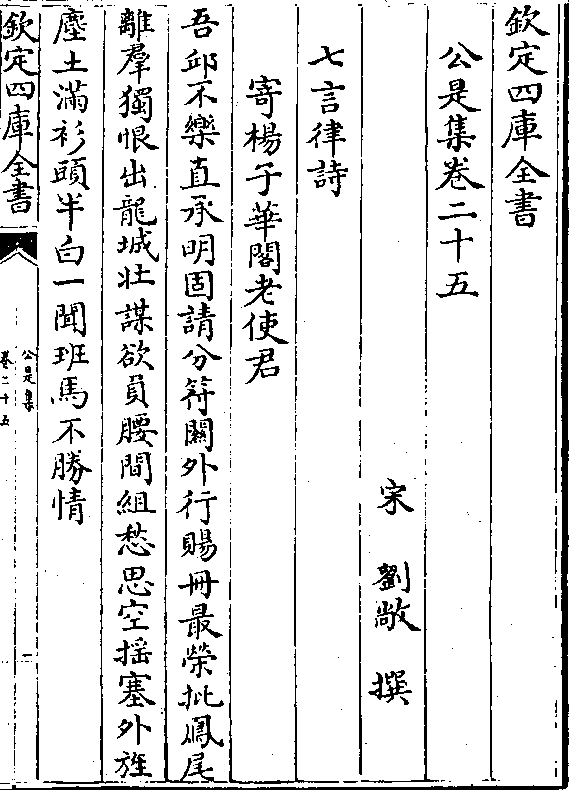 欽定四庫全書
公是集卷二十五
宋 劉敞 撰
七言律詩
寄楊子華閣老使君
吾邱不樂直承明固請分符闗外行賜冊最榮批鳳尾
離羣獨恨出龍城壯謀欲負腰間組愁思空揺塞外旌
塵土滿衫頭半白一聞班馬不勝情
欽定四庫全書
公是集
卷二十五
一